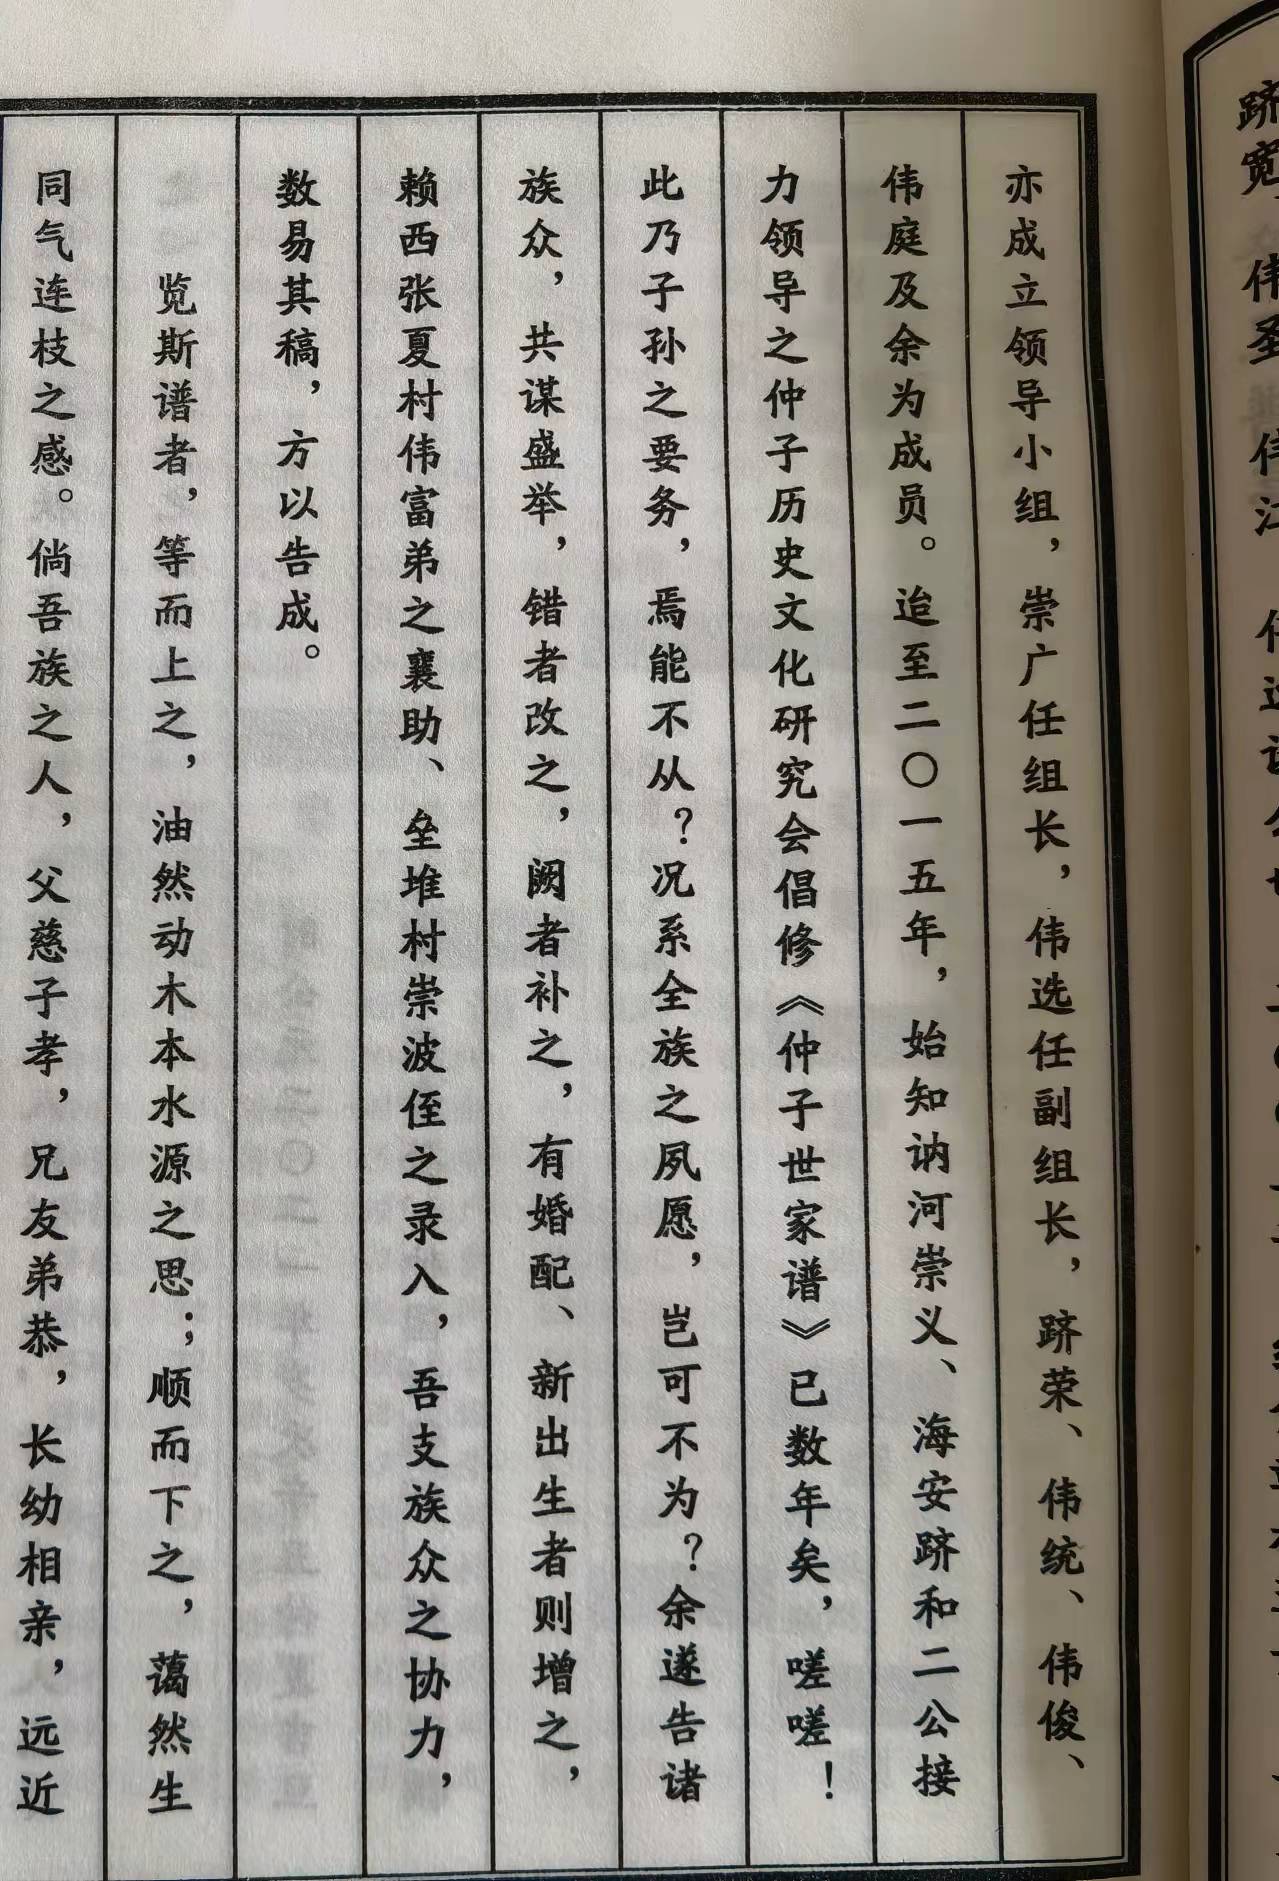 跻宽、伟圣、伟江、
亦成立领导小组，崇广任组长，伟选任副组长，跻荣、伟统、伟俊、
伟庭及余为成员。迨至二〇一五年，始知讷河崇义、海安跻和二公接
力领导之仲子历史文化研究会倡修《仲子世家谱》已数年矣，嗟嗟！
此乃子孙之要务，焉能不从？况系全族之夙愿，岂可不为？余遂告诸
族众，共谋盛举，错者改之，阙者补之，有婚配、新出生者则增之，
赖西张夏村伟富弟之襄助、垒堆村崇波侄之录入，吾支族众之协力，
数易其稿，方以告成。
览斯谱者，等而上之，油然动木本水源之思；顺而下之，蔼然生
同气连枝之感。倘吾族之人，父慈子孝，兄友弟恭，长幼相亲，远近